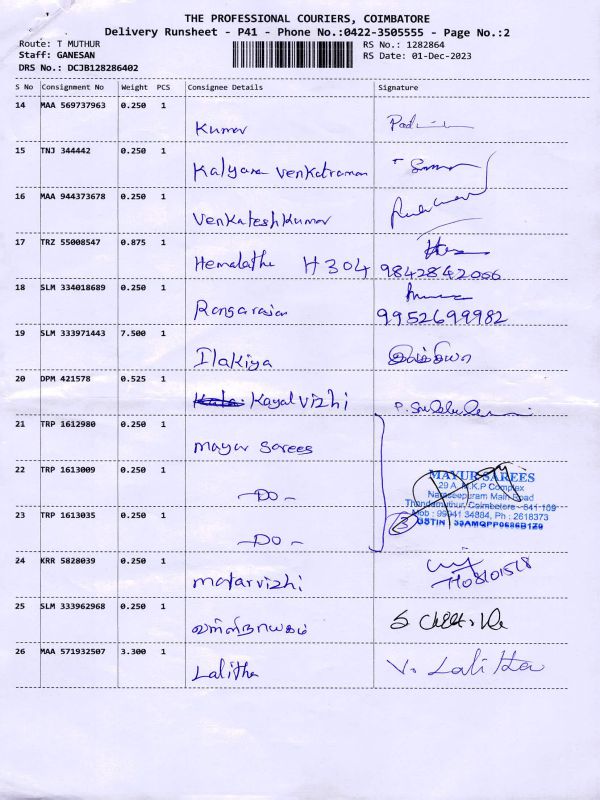 THE PROFESSIONAL COURIERS, COIMBATORE
Delivery Runsheet - P41 - Phone No.:0422-3505555 - Page No.:2
Route: T MUTHUR RS No.: 1282864
Staff: GANESAN RS Date: 01-Dec-2023
DRS No.: DCJB128286402
S No Consignment No Weight PCS Consignee Details Signature
14 MAA 569737963 0.250 1
Kumar
15 TNJ 344442 0.250 1
Kalyana Venkatraman
16 MAA 944373678 0.250 1
Venkatesh Kumar
17 TRZ 55008547 0.875 1
Hemalatha H 304 9842842056
18 SLM 334018689 0.250 1
Rangarajan 9952699982
19 SLM 333971443 7.500 1
Ilakiya
20 DPM 421578 0.525 1
Kayal Vizhi
21 TRP 1612980 0.250 1
Mayur Sarees
22 TRP 1613009 0.250 1
- Do -
MAYUR SAREES
29 A, M.K.P Complex
Narseepuram Main Road
Thondamuthur, Coimbatore - 641 109
23 TRP 1613035 0.250 1
Mob : 99941 34884, Ph : 2618373
3
- Do -
24 KRR 5828039 0.250 1
Malarvizhi
25 SLM 333962968 0.250 1
26 MAA 571932507 3.300 1
Lalitha V. Lalitha